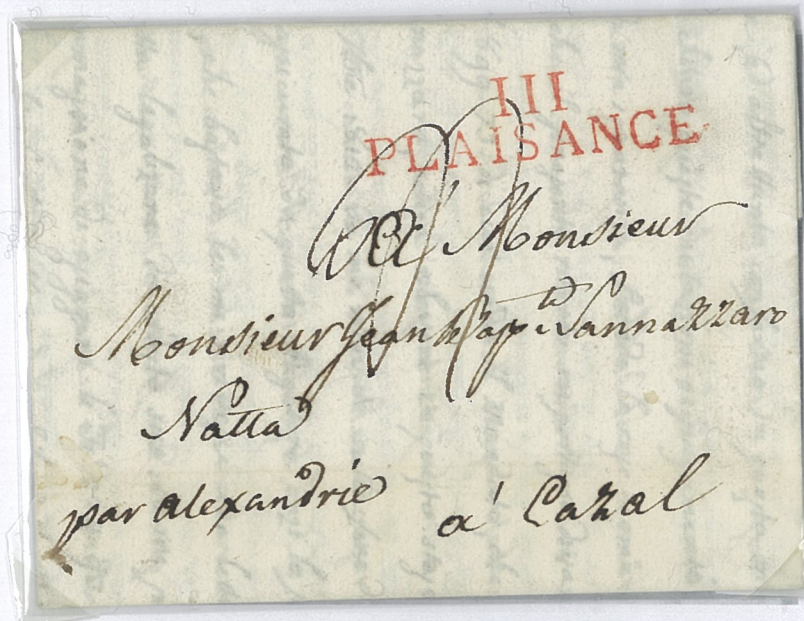 III
PLAISANCE
A Monsieur
Monsieur Jean Bap.te Sannazzaro
Natta
par alexandrie
a' Cazal